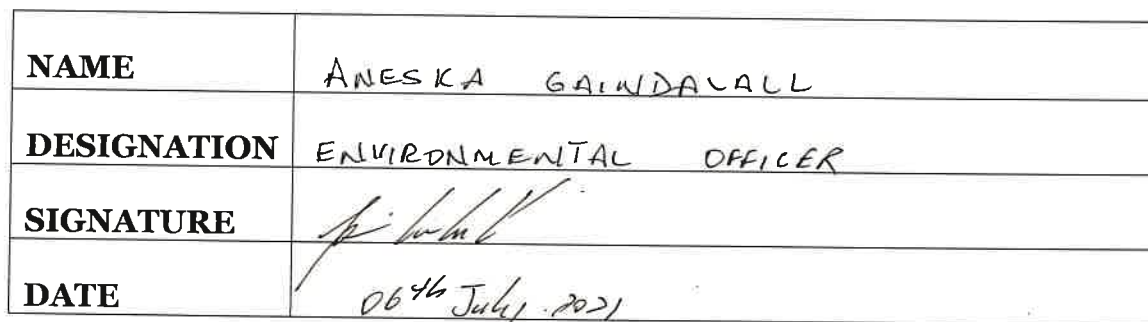 NAME ANESKA GAINDALALL
DESIGNATION ENVIRONMENTAL OFFICER
SIGNATURE
DATE 06th July. 2021